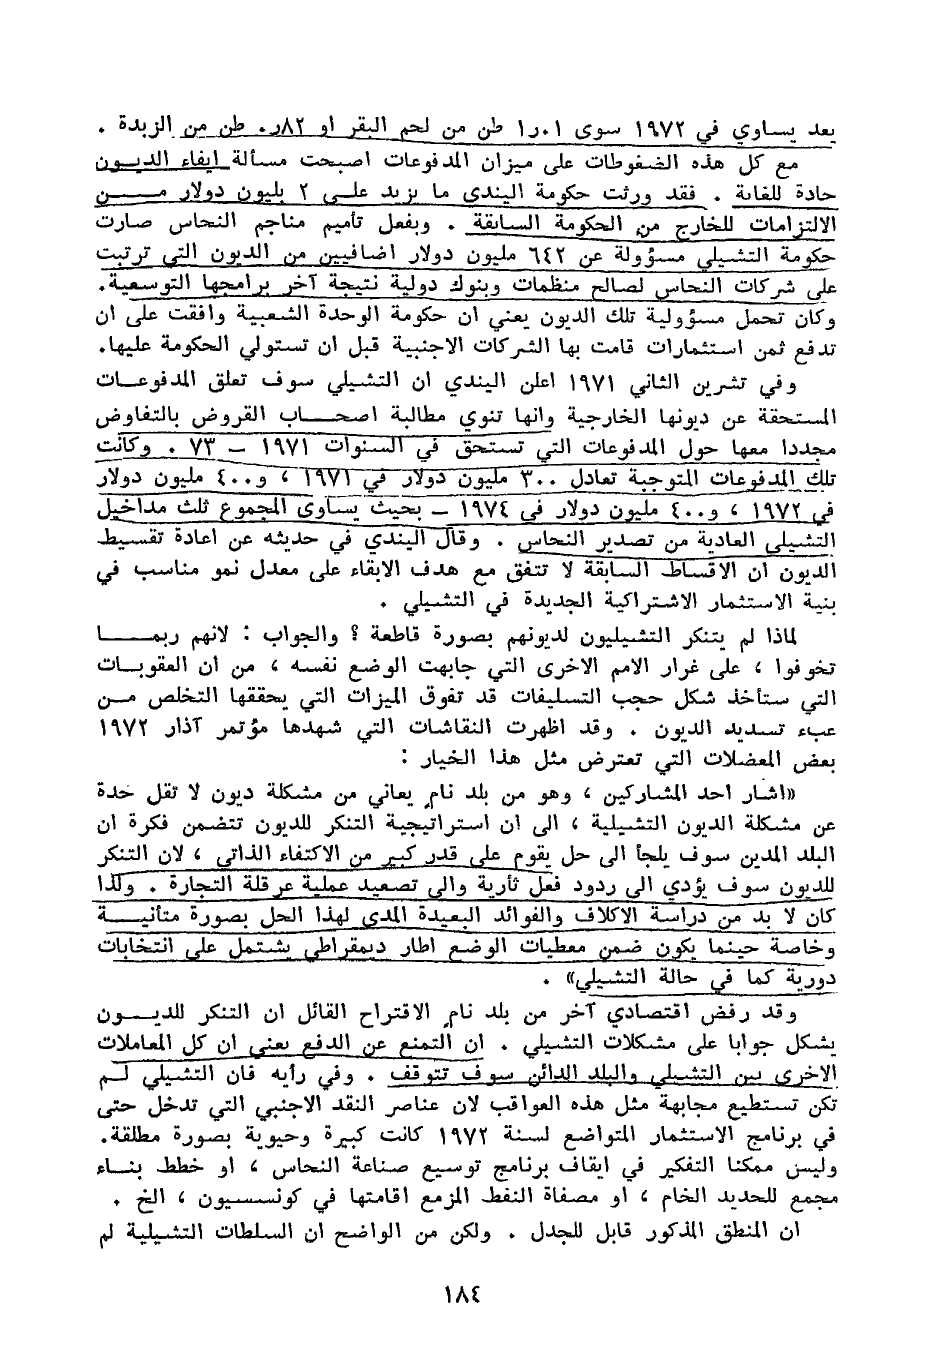 يعد يساوي في ١٩٧٢ سوى ١٠ر١ طن من لحم البقر او ٨٢ر٠ طن من الزبدة .
مع كل هذه الضغوطات على ميزان المدفوعات اصبحت مسألة ايفاء الديـــون
حادة للغاية . فقد ورثت حكومة اليندي ما يزيد علــى ٢ بليون دولار مـــــن
الالتزامات للخارج من الحكومة السابقة . وبفعل تأميم مناجم النحاس صارت
حكومة التشيلي مسؤولة عن ٦٤٢ مليون دولار اضافيين من الديون التي ترتبت
على شركات النحاس لصالح منظمات وبنوك دولية نتيجة آخر برامجها التوسعية.
وكان تحمل مسؤولية تلك الديون يعني ان حكومة الوحدة الشعبية وافقت على ان
تدفع ثمن استثمارات قامت بها الشركات الاجنبية قبل ان تستولي الحكومة عليها.
وفي تشرين الثاني ١٩٧١ اعلن اليندي ان التشيلي سوف تعلق المدفوعــات
المستحقة عن ديونها الخارجية وانها تنوي مطالبة اصحـــاب القروض بالتفاوض
مجددا معها حول المدفوعات التي تستحق في السنوات ١٩٧١ – ٧٣ . وكانت
تلك المدفوعات المتوجبة تعادل ٣٠٠ مليون دولار في ١٩٧١ ، و٤٠٠ مليون دولار
في ١٩٧٢ ، و٤٠٠ مليون دولار في ١٩٧٤ – بحيث يساوي المجموع ثلث مداخيل
التشيلي العادية من تصدير النحاس . وقال اليندي في حديثه عن اعادة تقسيط
الديون ان الاقساط السابقة لا تتفق مع هدف الابقاء على معدل نمو مناسب في
بنية الاستثمار الاشتراكية الجديدة في التشيلي .
لماذا لم يتنكر التشيليون لديونهم بصورة قاطعة ؟ والجواب : لانهم ربمــــــا
تخوفوا ، على غرار الامم الاخرى التي جابهت الوضع نفسه ، من ان العقوبــات
التي ستأخذ شكل حجب التسليفات قد تفوق الميزات التي يحققها التخلص مـــن
عبء تسديد الديون . وقد اظهرت النقاشات التي شهدها مؤتمر آذار ١٩٧٢
بعض المعضلات التي تعترض مثل هذا الخيار :
«اشار احد المشاركين ، وهو من بلد نامٍ يعاني من مشكلة ديون لا تقل حدة
عن مشكلة الديون التشيلية ، الى ان استراتيجية التنكر للديون تتضمن فكرة ان
البلد المدين سوف يلجأ الى حل يقوم على قدر كبير من الاكتفاء الذاتي ، لان التنكر
للديون سوف يؤدي الى ردود فعل ثأرية والى تصعيد عملية عرقلة التجارة . ولذا
كان لا بد من دراسة الاكلاف والفوائد البعيدة المدى لهذا الحل بصورة متأنيـــــة
وخاصة حينما يكون ضمن معطيات الوضع اطار ديمقراطي يشتمل على انتخابات
دورية كما في حالة التشيلي» .
وقد رفض اقتصادي آخر من بلد نامٍ الاقتراح القائل ان التنكر للديــــون
يشكل جوابا على مشكلات التشيلي . ان التمنع عن الدفع يعني ان كل المعاملات
الاخرى بين التشيلي والبلد الدائن سوف تتوقف . وفي رأيه فان التشيلي لــم
تكن تستطيع مجابهة مثل هذه العواقب لان عناصر النقد الاجنبي التي تدخل حتى
في برنامج الاستثمار المتواضع لسنة ١٩٧٢ كانت كبيرة وحيوية بصورة مطلقة.
وليس ممكنا التفكير في ايقاف برنامج توسيع صناعة النحاس ، او خطط بنــاء
مجمع للحديد الخام ، او مصفاة النفط المزمع اقامتها في كونسسيون ، الخ .
ان المنطق المذكور قابل للجدل . ولكن من الواضح ان السلطات التشيلية لم
١٨٤